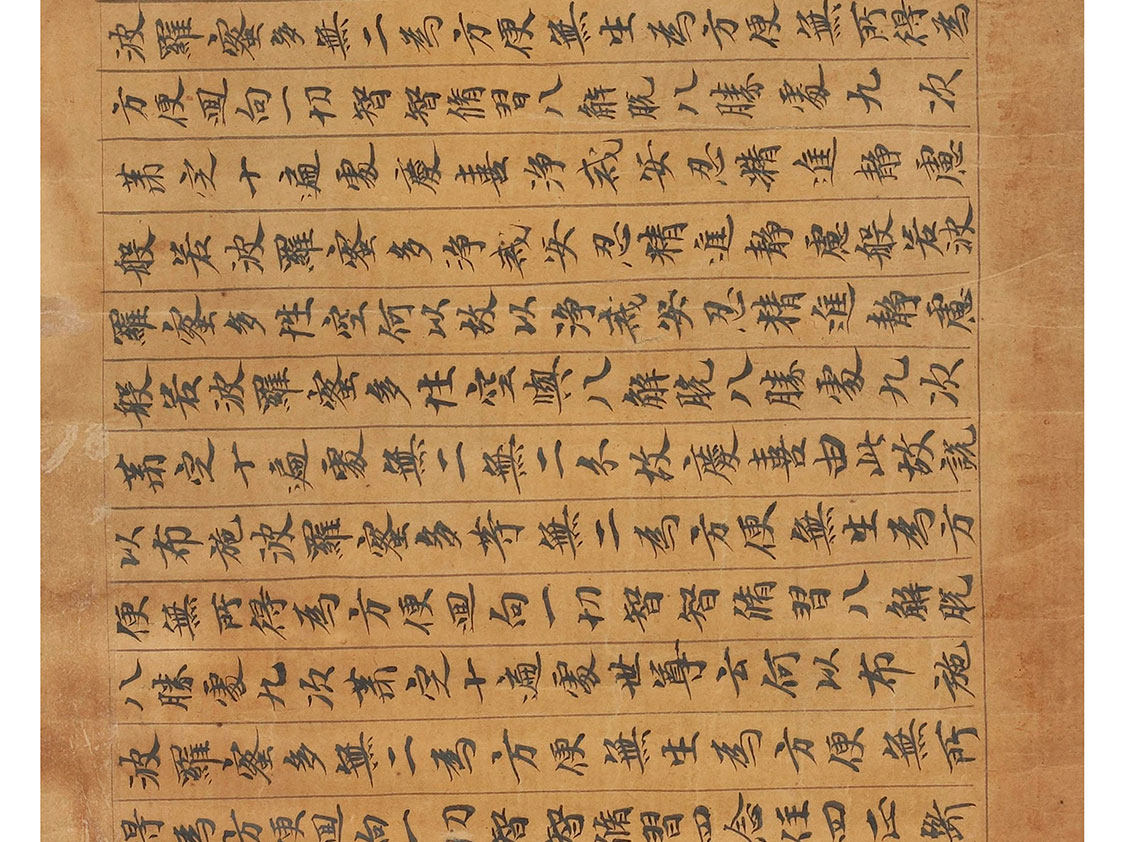 波羅蜜多無二為方便無生為方便無所得為
方便迴向一切智智脩習八解脫八勝處九次
第定十遍處慶喜淨戒安忍精進靜慮
般若波羅蜜多淨戒安忍精進靜慮般若波
羅蜜多性空何以故以淨戒安忍精進靜慮
般若波羅蜜多性空與八解脫八勝處九次
第定十遍處無二無二分故慶喜由此故說
以布施波羅蜜多等無二為方便無生為方
便無所得為方便迴向一切智智脩習八解脫
八勝處九次第定十遍處世尊云何以布施
波羅蜜多無二為方便無生為方便無所
得為方便迴向一切智智脩習四念住四正斷